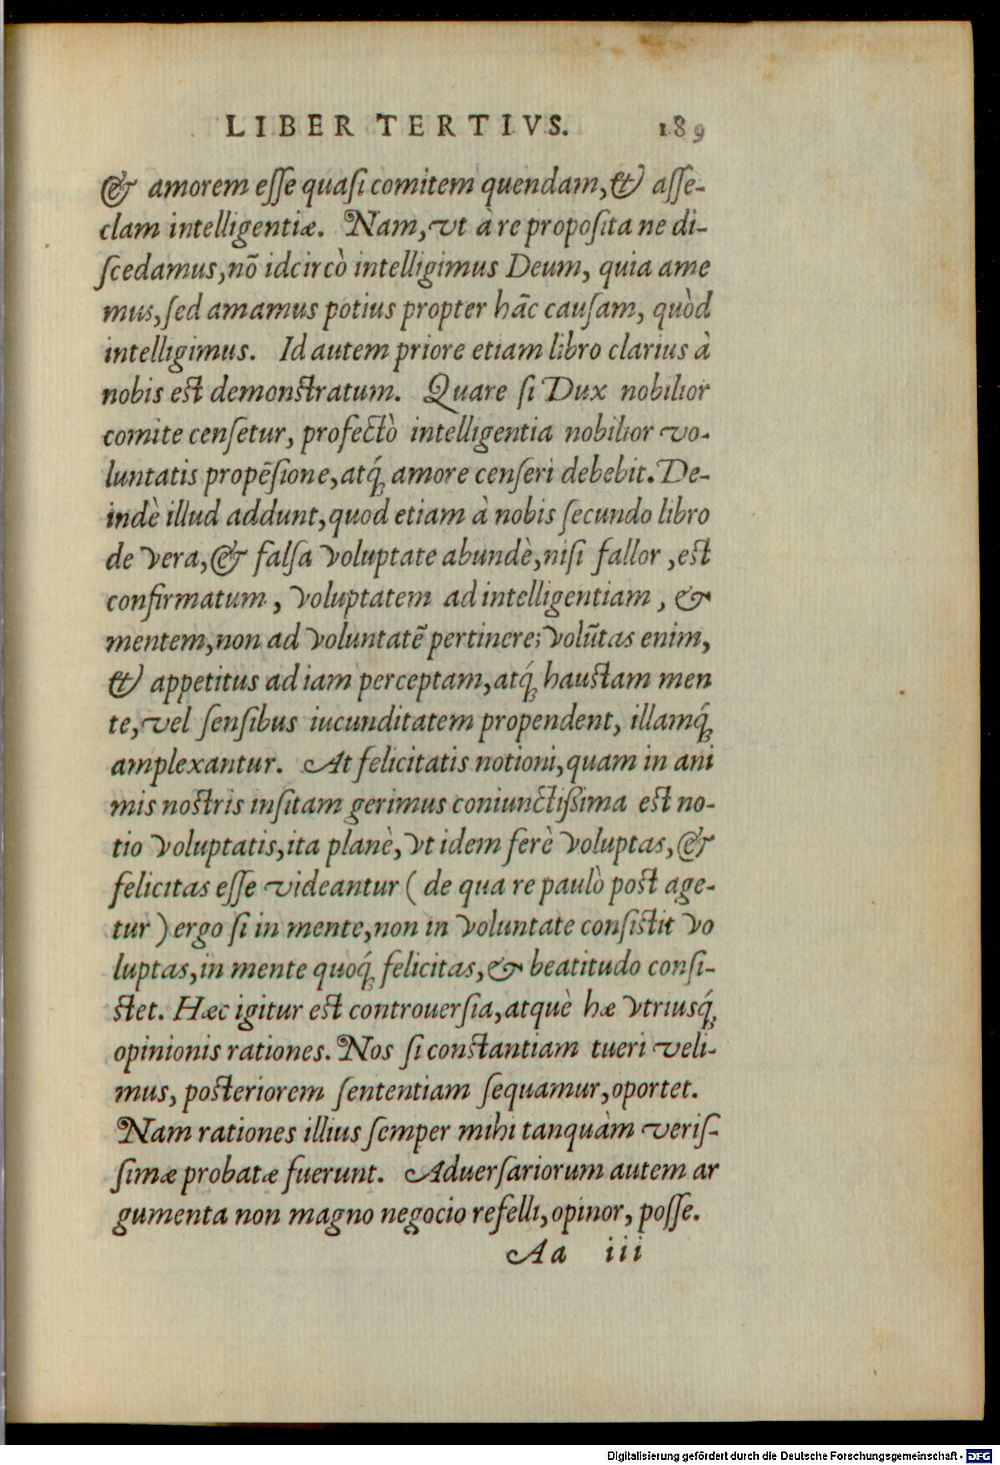 LIBER TERTIVS. 189
& amorem esse quasi comitem quendam, & asse-
clam intelligentiæ. Nam, vt à re proposita ne di-
scedamus, nõ idcircò intelligimus Deum, quia ame
mus, sed amamus potius propter hãc causam, quòd
intelligimus. Id autem priore etiam libro clarius à
nobis est demonstratum. Quare si Dux nobilior
comite censetur, profectò intelligentia nobilior vo-
luntatis propẽsione, atq́ amore censeri debebit. De-
indè illud addunt, quod etiam à nobis secundo libro
de vera, & falsa voluptate abundè, nisi fallor, est
confirmatum, voluptatem ad intelligentiam, &
mentem, non ad voluntatẽ pertinere; volũtas enim,
& appetitus ad iam perceptam, atq́ haustam men
te, vel sensibus iucunditatem propendent, illamq́
amplexantur. At felicitatis notioni, quam in ani
mis nostris insitam gerimus coniunctißima est no-
tio voluptatis, ita planè, vt idem ferè voluptas, &
felicitas esse videantur (de qua re paulò post age-
tur) ergo si in mente, non in voluntate consistit vo
luptas, in mente quoq́ felicitas, & beatitudo consi-
stet. Hæc igitur est controuersia, atquè hæ vtriusq́
opinionis rationes. Nos si constantiam tueri veli-
mus, posteriorem sententiam sequamur, oportet.
Nam rationes illius semper mihi tanquàm veris-
simæ probatæ fuerunt. Aduersariorum autem ar
gumenta non magno negocio refelli, opinor, posse.
Aa iii
Digitalisierung gefördert durch die Deutsche Forschungsgemeinschaft - DFG